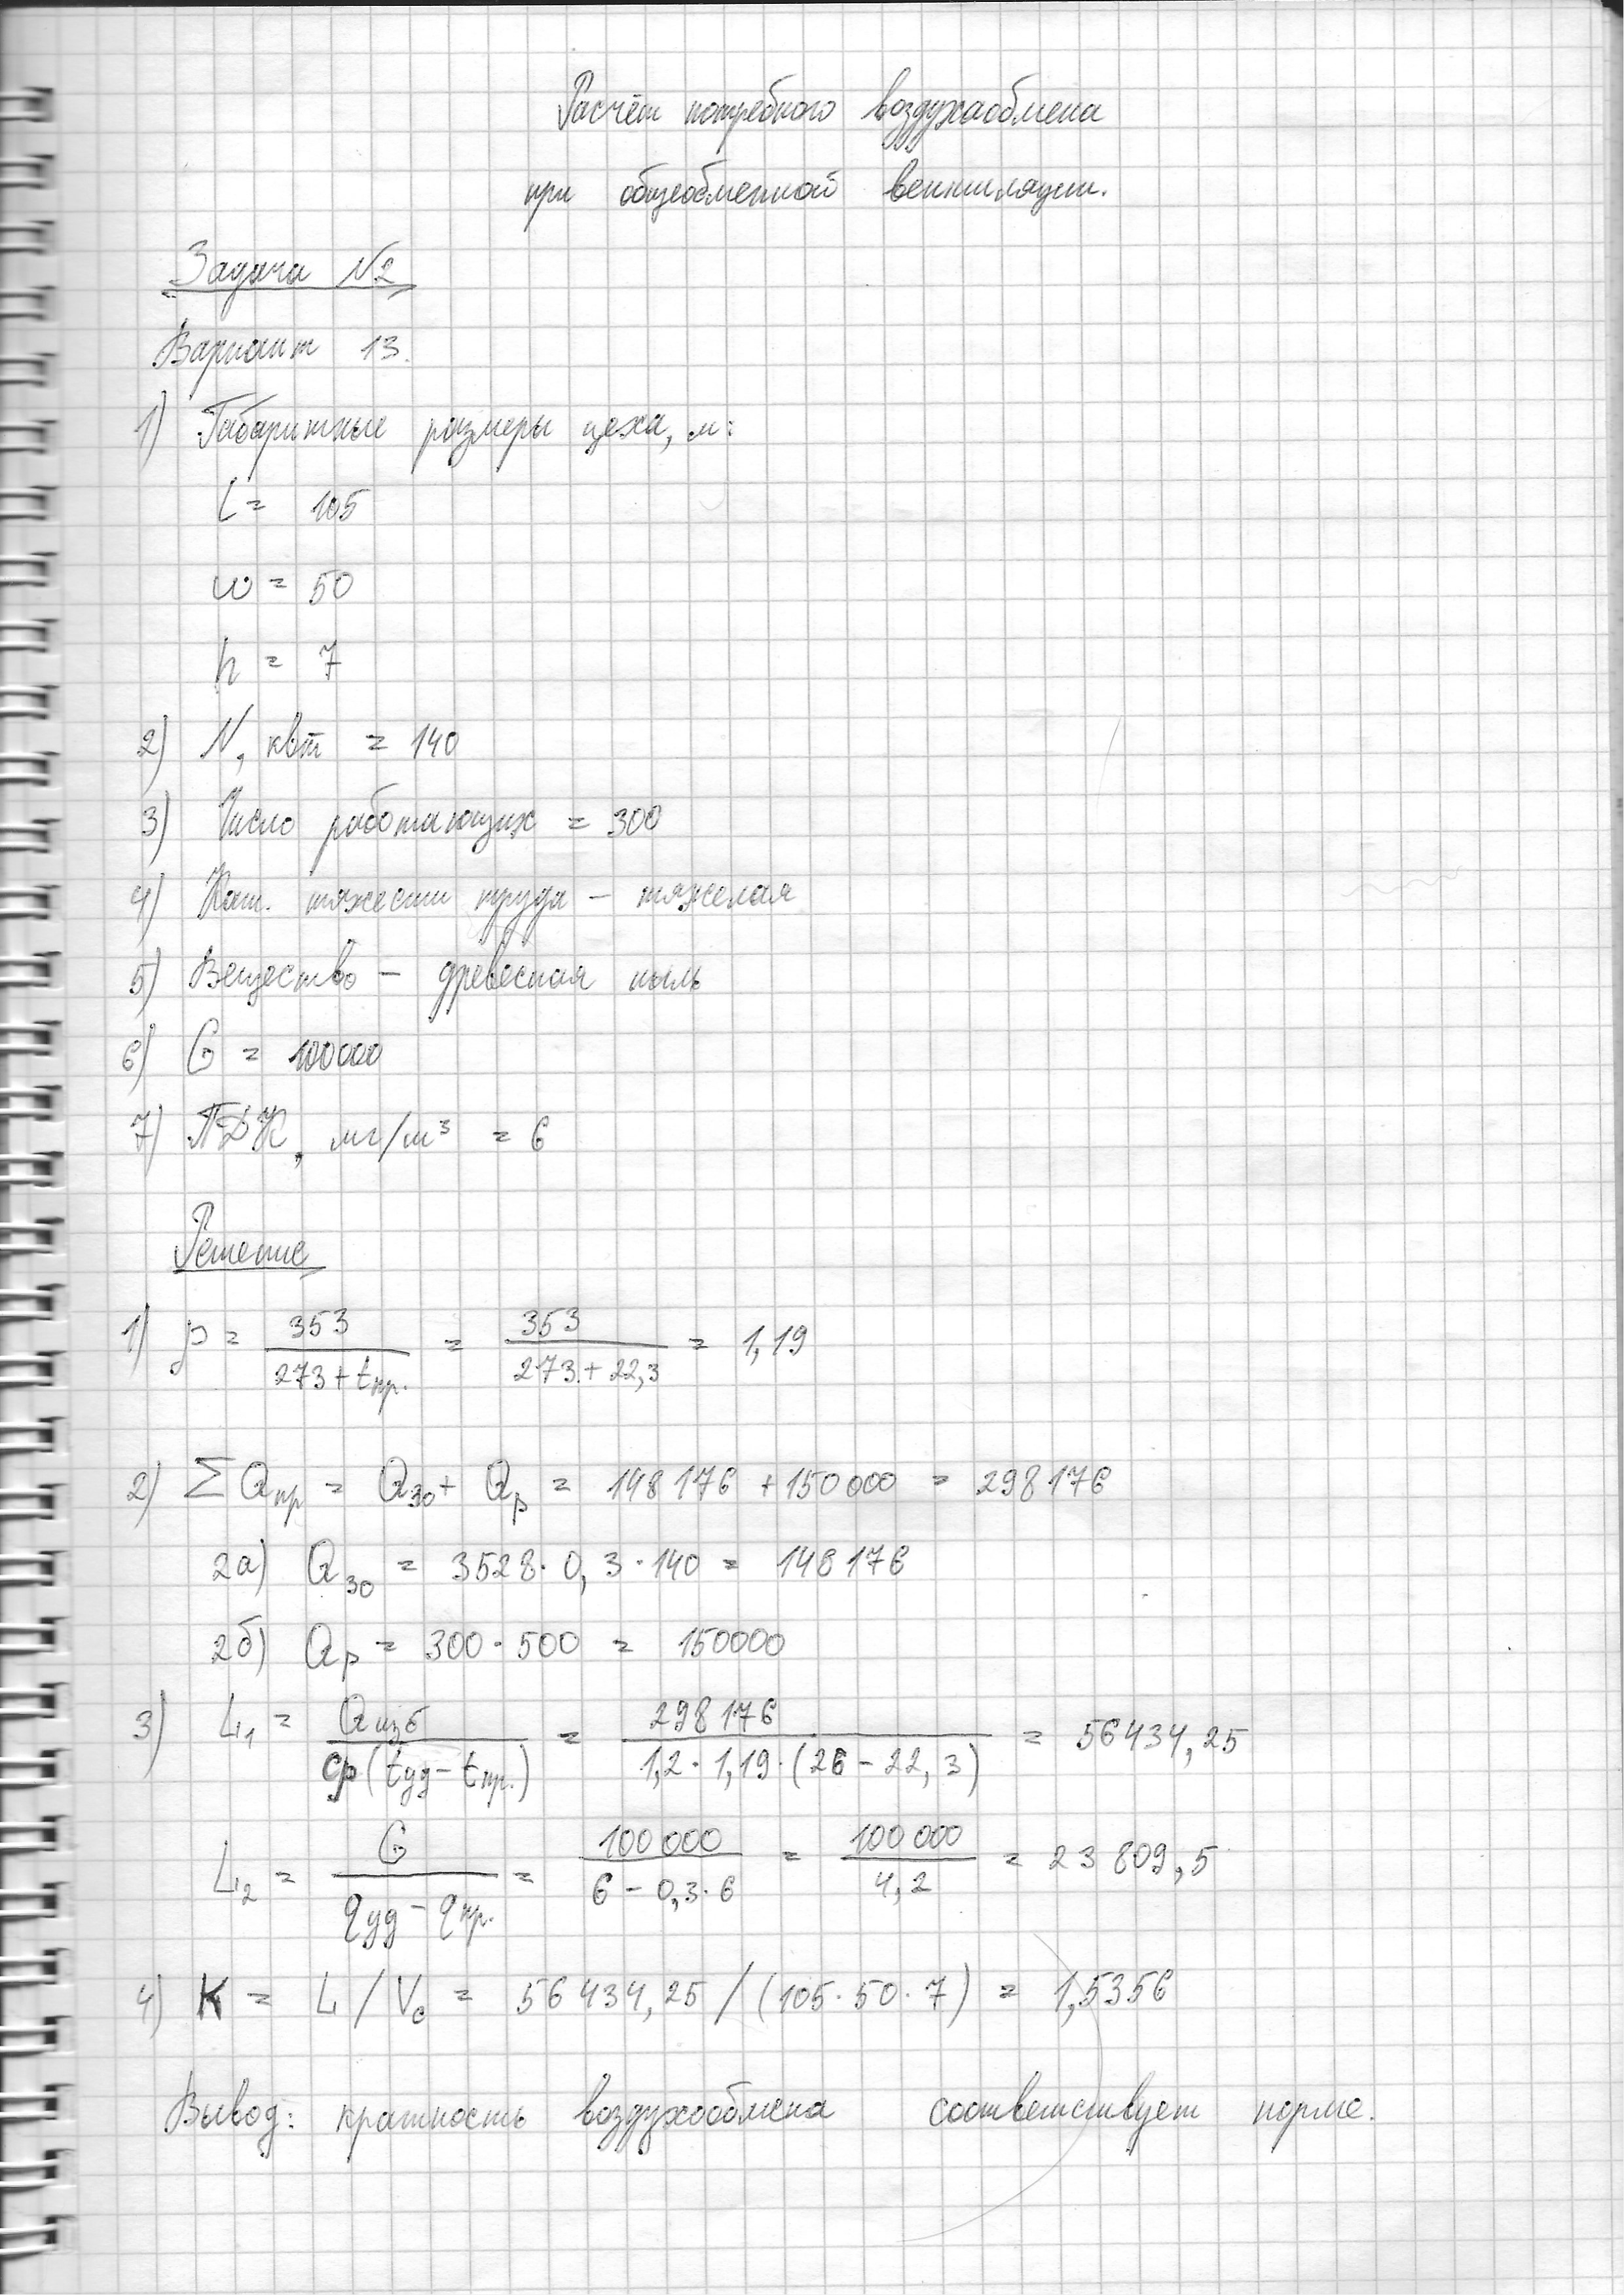 Расчёт потребного воздухаобмена
при общеобменной вентиляции.
Задача №2
Вариант 13.
1) Габаритные размеры цеха, м:
L = 105
w = 50
h = 7
2) N, квт = 140
3) Число работающих = 300
4) Кат. тяжести труда - тяжелая
5) Вещество - древесная пыль
6) G = 100000
7) ПДК, мг/м³ = 6
Решение
1) ρ = 353 / (273 + tпр.) = 353 / (273 + 22,3) = 1,19
2) ΣQпр = Qэо + Qр = 148 176 + 150 000 = 298 176
2а) Qэо = 3528 · 0,3 · 140 = 148 176
2б) Qр = 300 · 500 = 150000
3) L₁ = Qизб / cρ(tуд - tпр.) = 298 176 / 1,2 · 1,19 · (26 - 22,3) = 56434,25
L₂ = G / (qуд - qпр.) = 100 000 / (6 - 0,3 · 6) = 100 000 / 4,2 = 23 809,5
4) K = L / Vc = 56 434,25 / (105 · 50 · 7) = 1,5356
Вывод: кратность воздухообмена соответствует норме.